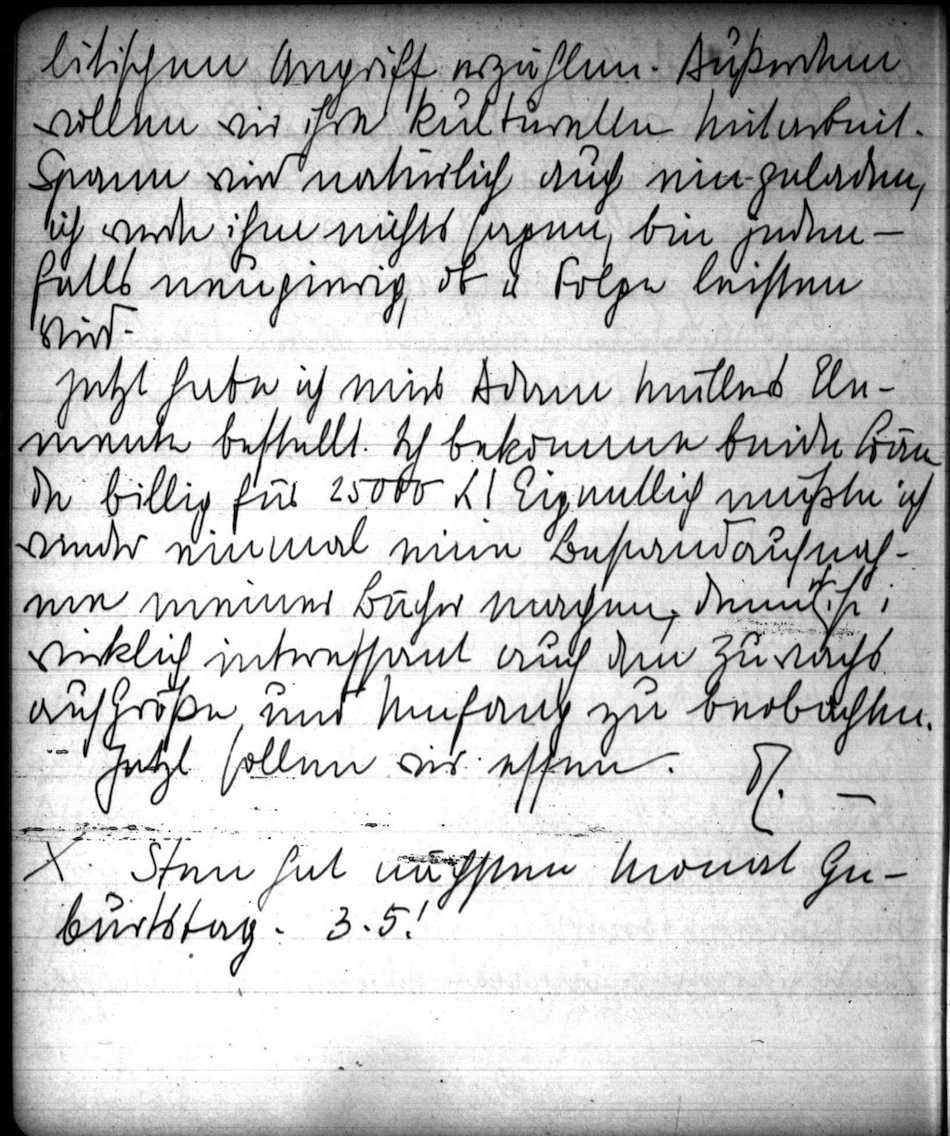 litischen Angriff erzählen. Außerdem
wollen wir ihre kulturelle Mitarbeit.
Spann wird natürlich auch ein-geladen,
ich werde ihm nichts sagen, bin jeden-
falls neugierig, ob er Folge leisten
wird.
Jetzt habe ich mir Adam Müllers Ele-
mente bestellt. Ich bekomme beide Bän
de billig für 25000 K! Eigentlich müßte ich
wieder einmal eine Bestandaufnah-
me meiner Bücher machen, denn es ist
wirklich interessant auch den Zuwachs
auf Größe und Umfang zu beobachten.
Jetzt sollen wir essen. —
X Sten hat nächsten Monat Ge-
burtstag. 3.5!